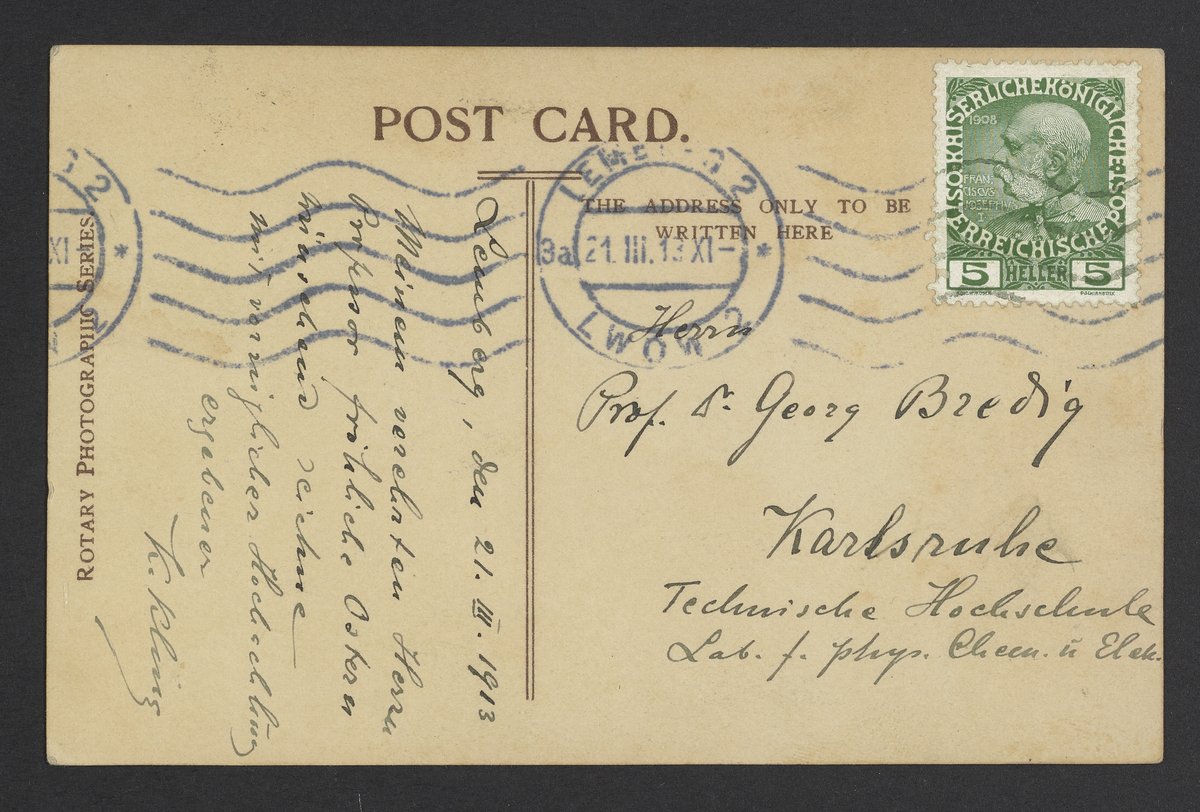 POST CARD.
THE ADDRESS ONLY TO BE
WRITTEN HERE
ROTARY PHOTOGRAPHIC SERIES
LEMBERG 2
3a 21.III.13 XI-
*
LWÓW 2
G 2
XI
*
2
KAISERLICHE KÖNIGLICHE
ÖSTERREICHISCHE POST
1908
FRAN
CISCVS
IOSEPHVS
I
5 HELLER 5
Lemberg, den 21. III. 1913
Meinem verehrten Herrn
Professor fröhliche Ostern
wünschend zeichne
mit vorzüglicher Hochachtung
ergebener
K. Kling
Herrn
Prof. Dr. Georg Bredig
Karlsruhe
Technische Hochschule
Lab. f. phys. Chem. ü Elek.